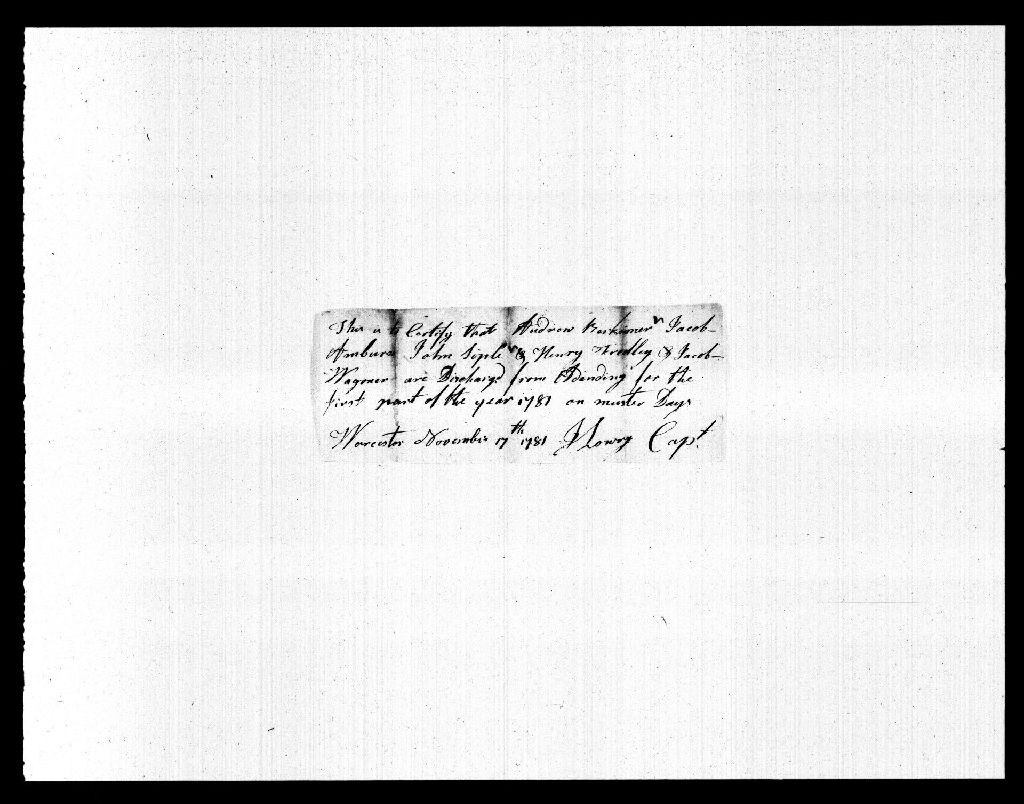 This is to Certify that Andrew Jacob
John Siple & Henry & Jacob
Wagoner are Discharged from Attending for the
first part of the year 1781 on muster Days
Worcester November 17th 1781 Capt